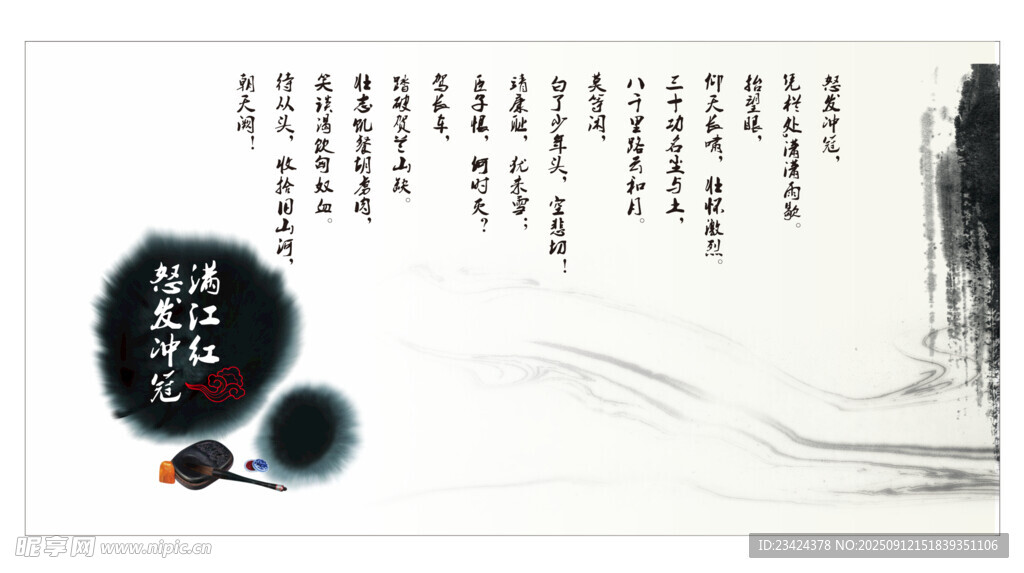 怒发冲冠，
凭栏处，潇潇雨歇。
抬望眼，
仰天长啸，壮怀激烈。
三十功名尘与土，
八千里路云和月。
莫等闲，
白了少年头，空悲切！
靖康耻，犹未雪；
臣子恨，何时灭？
驾长车，
踏破贺兰山缺。
壮志饥餐胡虏肉，
笑谈渴饮匈奴血。
待从头，收拾旧山河，
朝天阙！
满江红
怒发冲冠
昵享网 www.nipic.cn
ID:23424378 NO:20250912151839351106